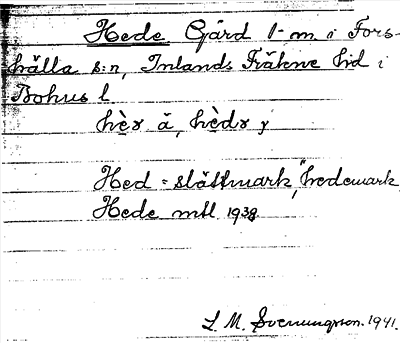 Hede Gård 1 m. i Fors-
hälla s:n, Inlands Fräkne hd i
Bohus l.
hèr ä, hèdr j
Hed = slättmark, "hedemark
Hede mtl 1938
L. M. Svenungson. 1941.